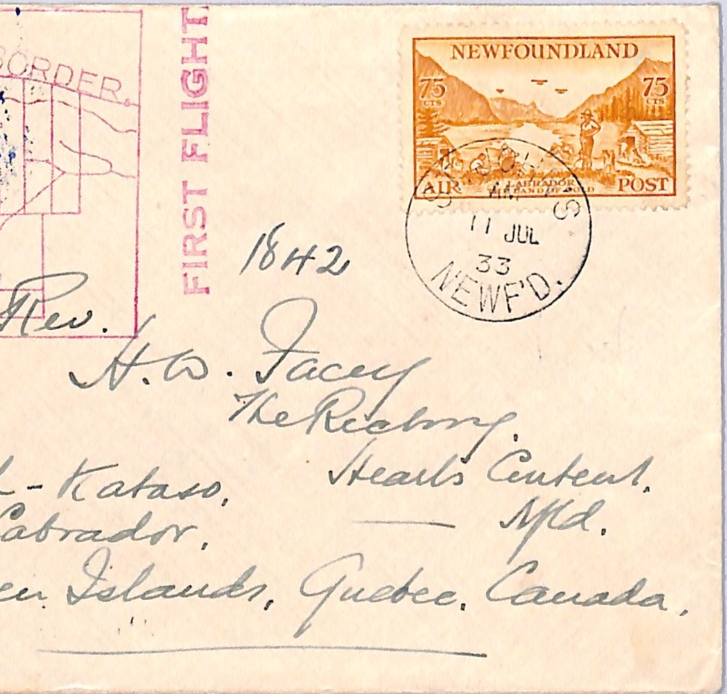 BORDER.
FIRST FLIGHT
NEWFOUNDLAND
75 CTS 75 CTS
AIR LABRADOR LAND OF GOLD POST
ST. JOHN'S
AM
11 JUL
33
NEWF'D.
1842
Rev.
H.W. Facey
The Rectory.
Hearts Content.
Nfld.
Kataso,
Labrador,
Islands, Quebec. Canada.